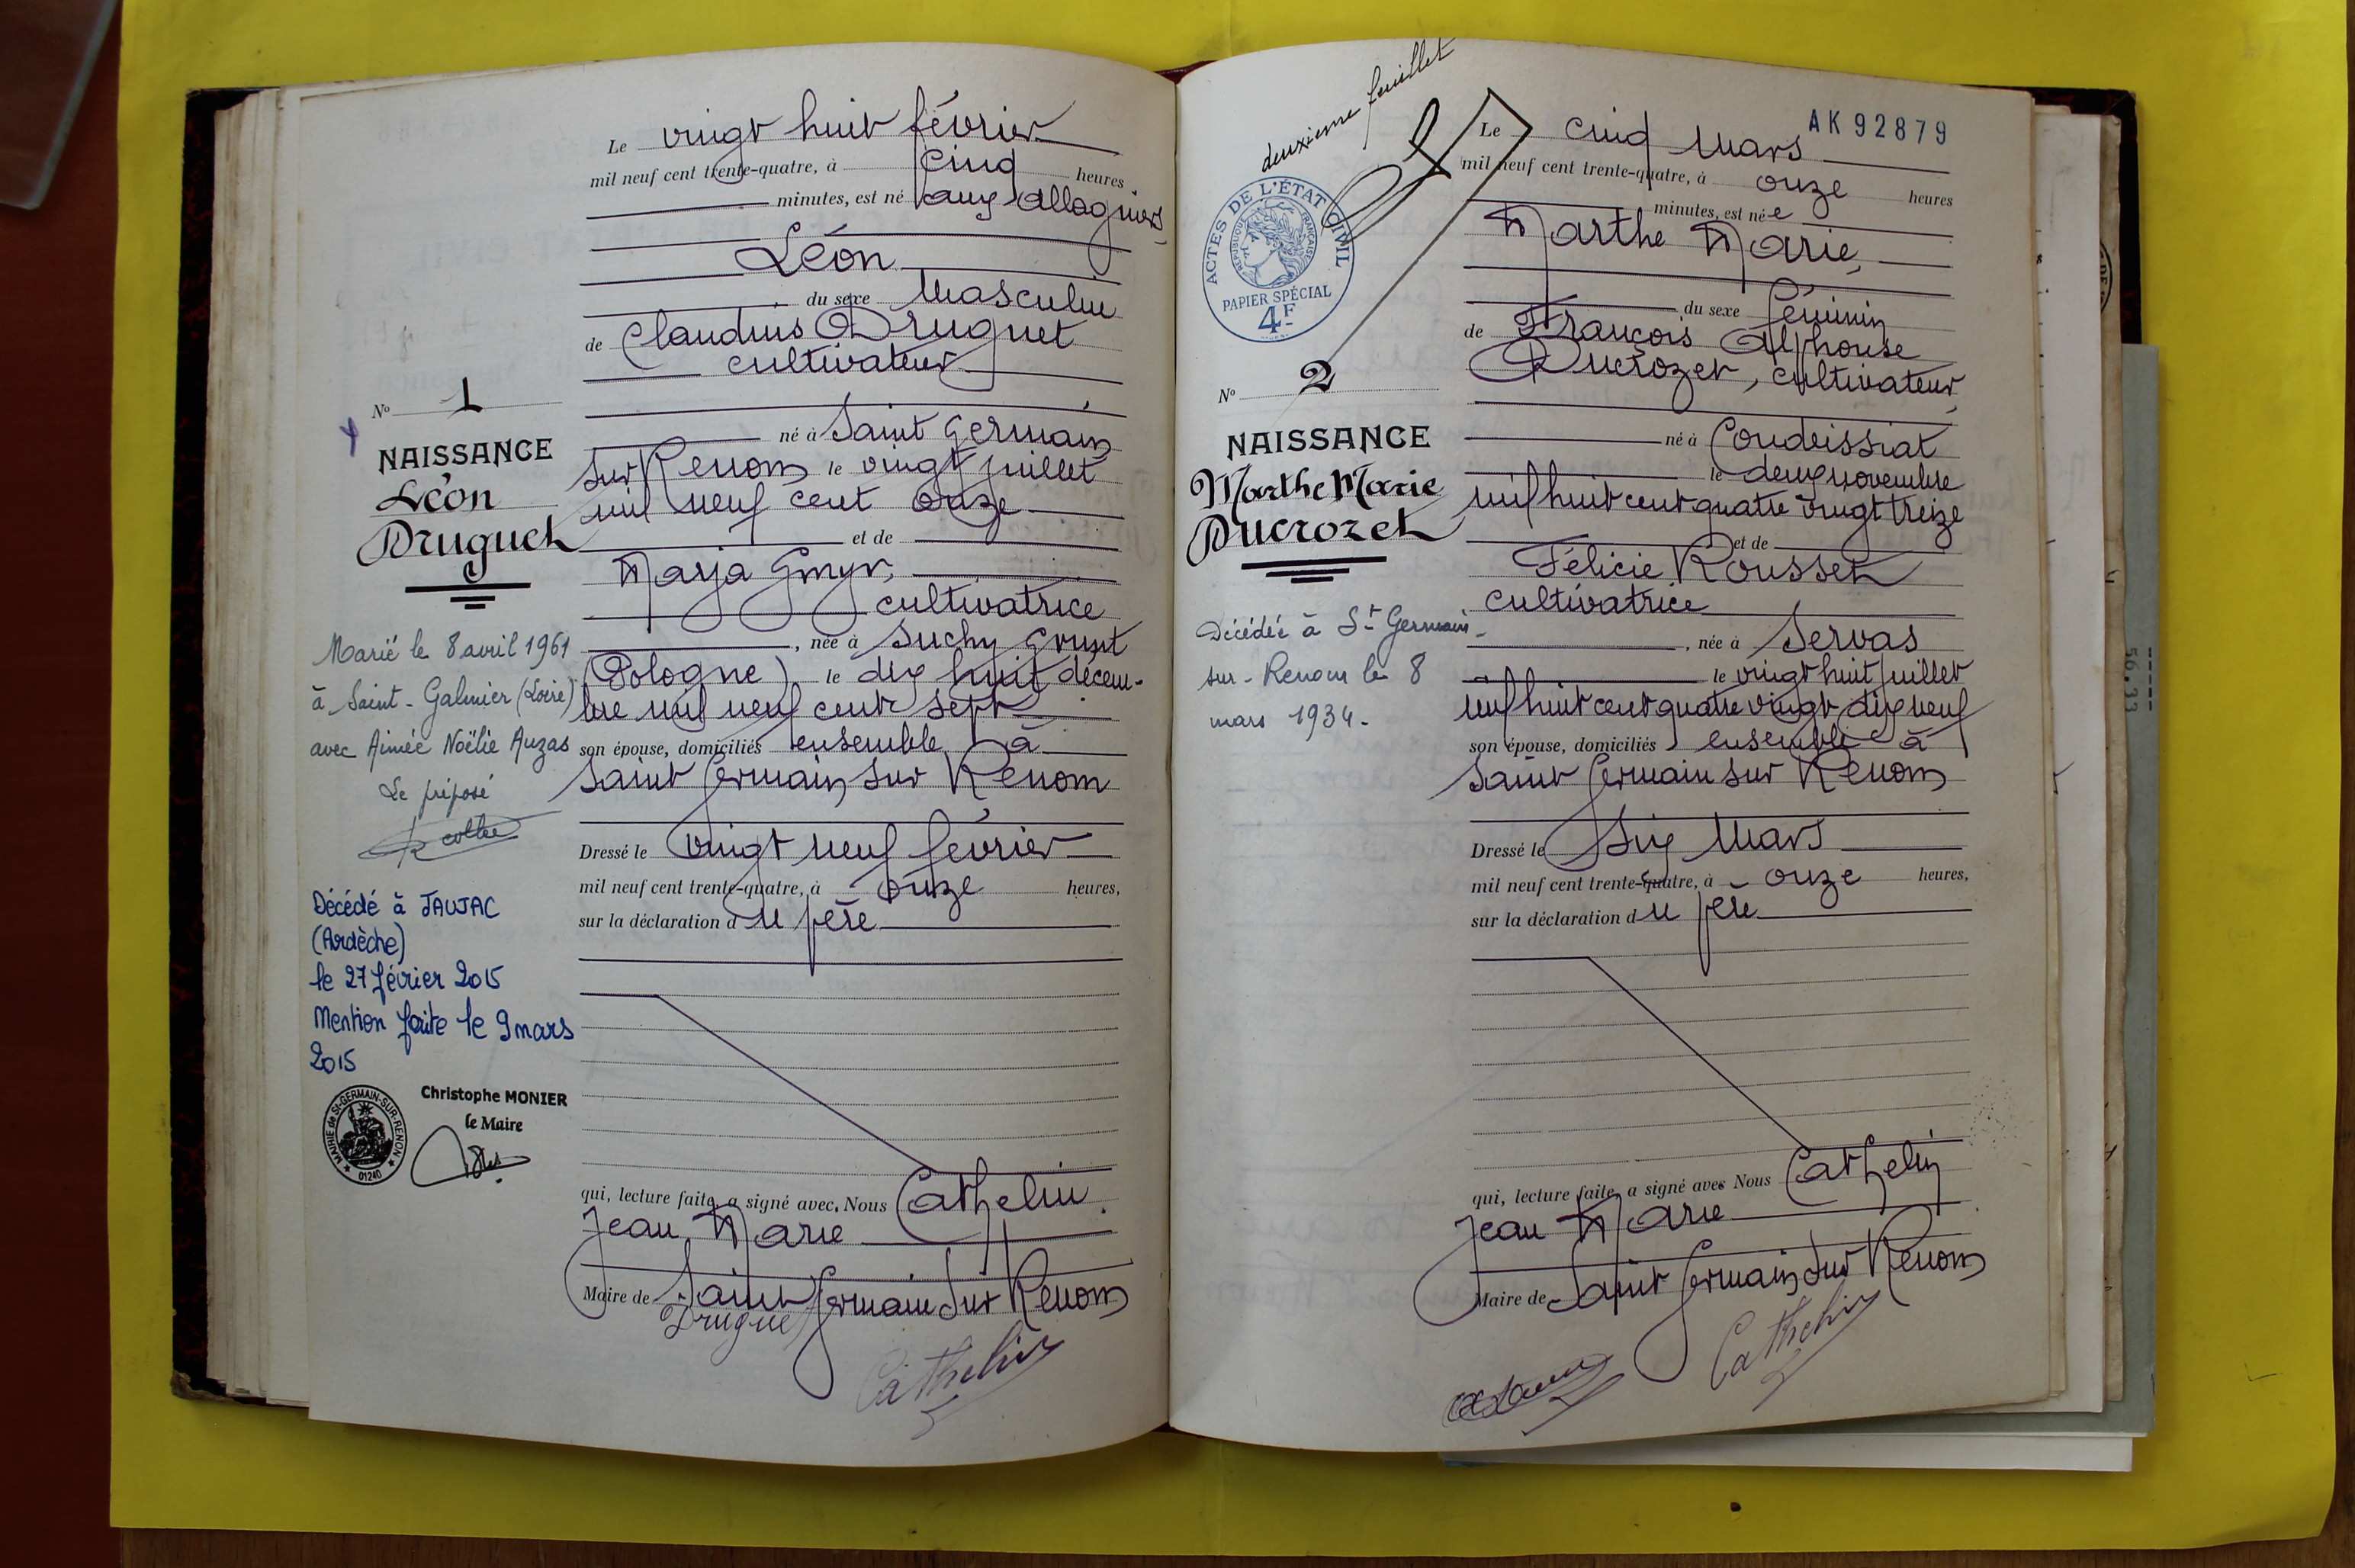 Le vingt huit février
mil neuf cent trente-quatre, à cinq heures
minutes, est né aux Allagniers
Léon
du sexe Masculin
de Claudius Druguet
cultivateur
né à Saint Germain
sur Renom le vingt juillet
mil neuf cent onze
et de
Marja Gmyr,
cultivatrice
, née à Suchy Grunt
(Pologne) le dix huit décem-
bre mil neuf cent sept
son épouse, domiciliés ensemble à
Saint Germain sur Renom
Dressé le vingt neuf février
mil neuf cent trente-quatre, à onze heures,
sur la déclaration du père
qui, lecture faite, a signé avec, Nous Cathelin
Jean Marie
Maire de Saint Germain sur Renom
Druguet
Cathelin
No 1
NAISSANCE
Léon
Druguet
Marié le 8 avril 1961
à Saint-Galmier (Loire)
avec Aimée Noëlie Auzas
Le préposé
Décédé à JAUJAC
(Ardèche)
le 27 février 2015
Mention faite le 9 mars
2015
MAIRIE de St-GERMAIN-SUR-RENON
01240
Christophe MONIER
le Maire
deuxième feuillet
AK 92879
ACTES DE L'ÉTAT CIVIL
RÉPUBLIQUE FRANÇAISE
PAPIER SPÉCIAL
4F
No 2
NAISSANCE
Marthe Marie
Ducrozet
Décédée à St Germain-
sur-Renom le 8
mars 1934.
Le cinq Mars
mil neuf cent trente-quatre, à onze heures
minutes, est née
Marthe Marie,
du sexe féminin
de François Alphonse
Ducrozet, cultivateur,
né à Condeissiat
le deux novembre
mil huit cent quatre vingt treize
et de
Félicie Rousset
cultivatrice
, née à Servas
le vingt huit juillet
mil huit cent quatre vingt dix neuf
son épouse, domiciliés ensemble à
Saint Germain sur Renom
Dressé le Six Mars
mil neuf cent trente-quatre, à onze heures,
sur la déclaration du père
qui, lecture faite, a signé avec Nous Cathelin
Jean Marie
Maire de Saint Germain sur Renom
Cathelin